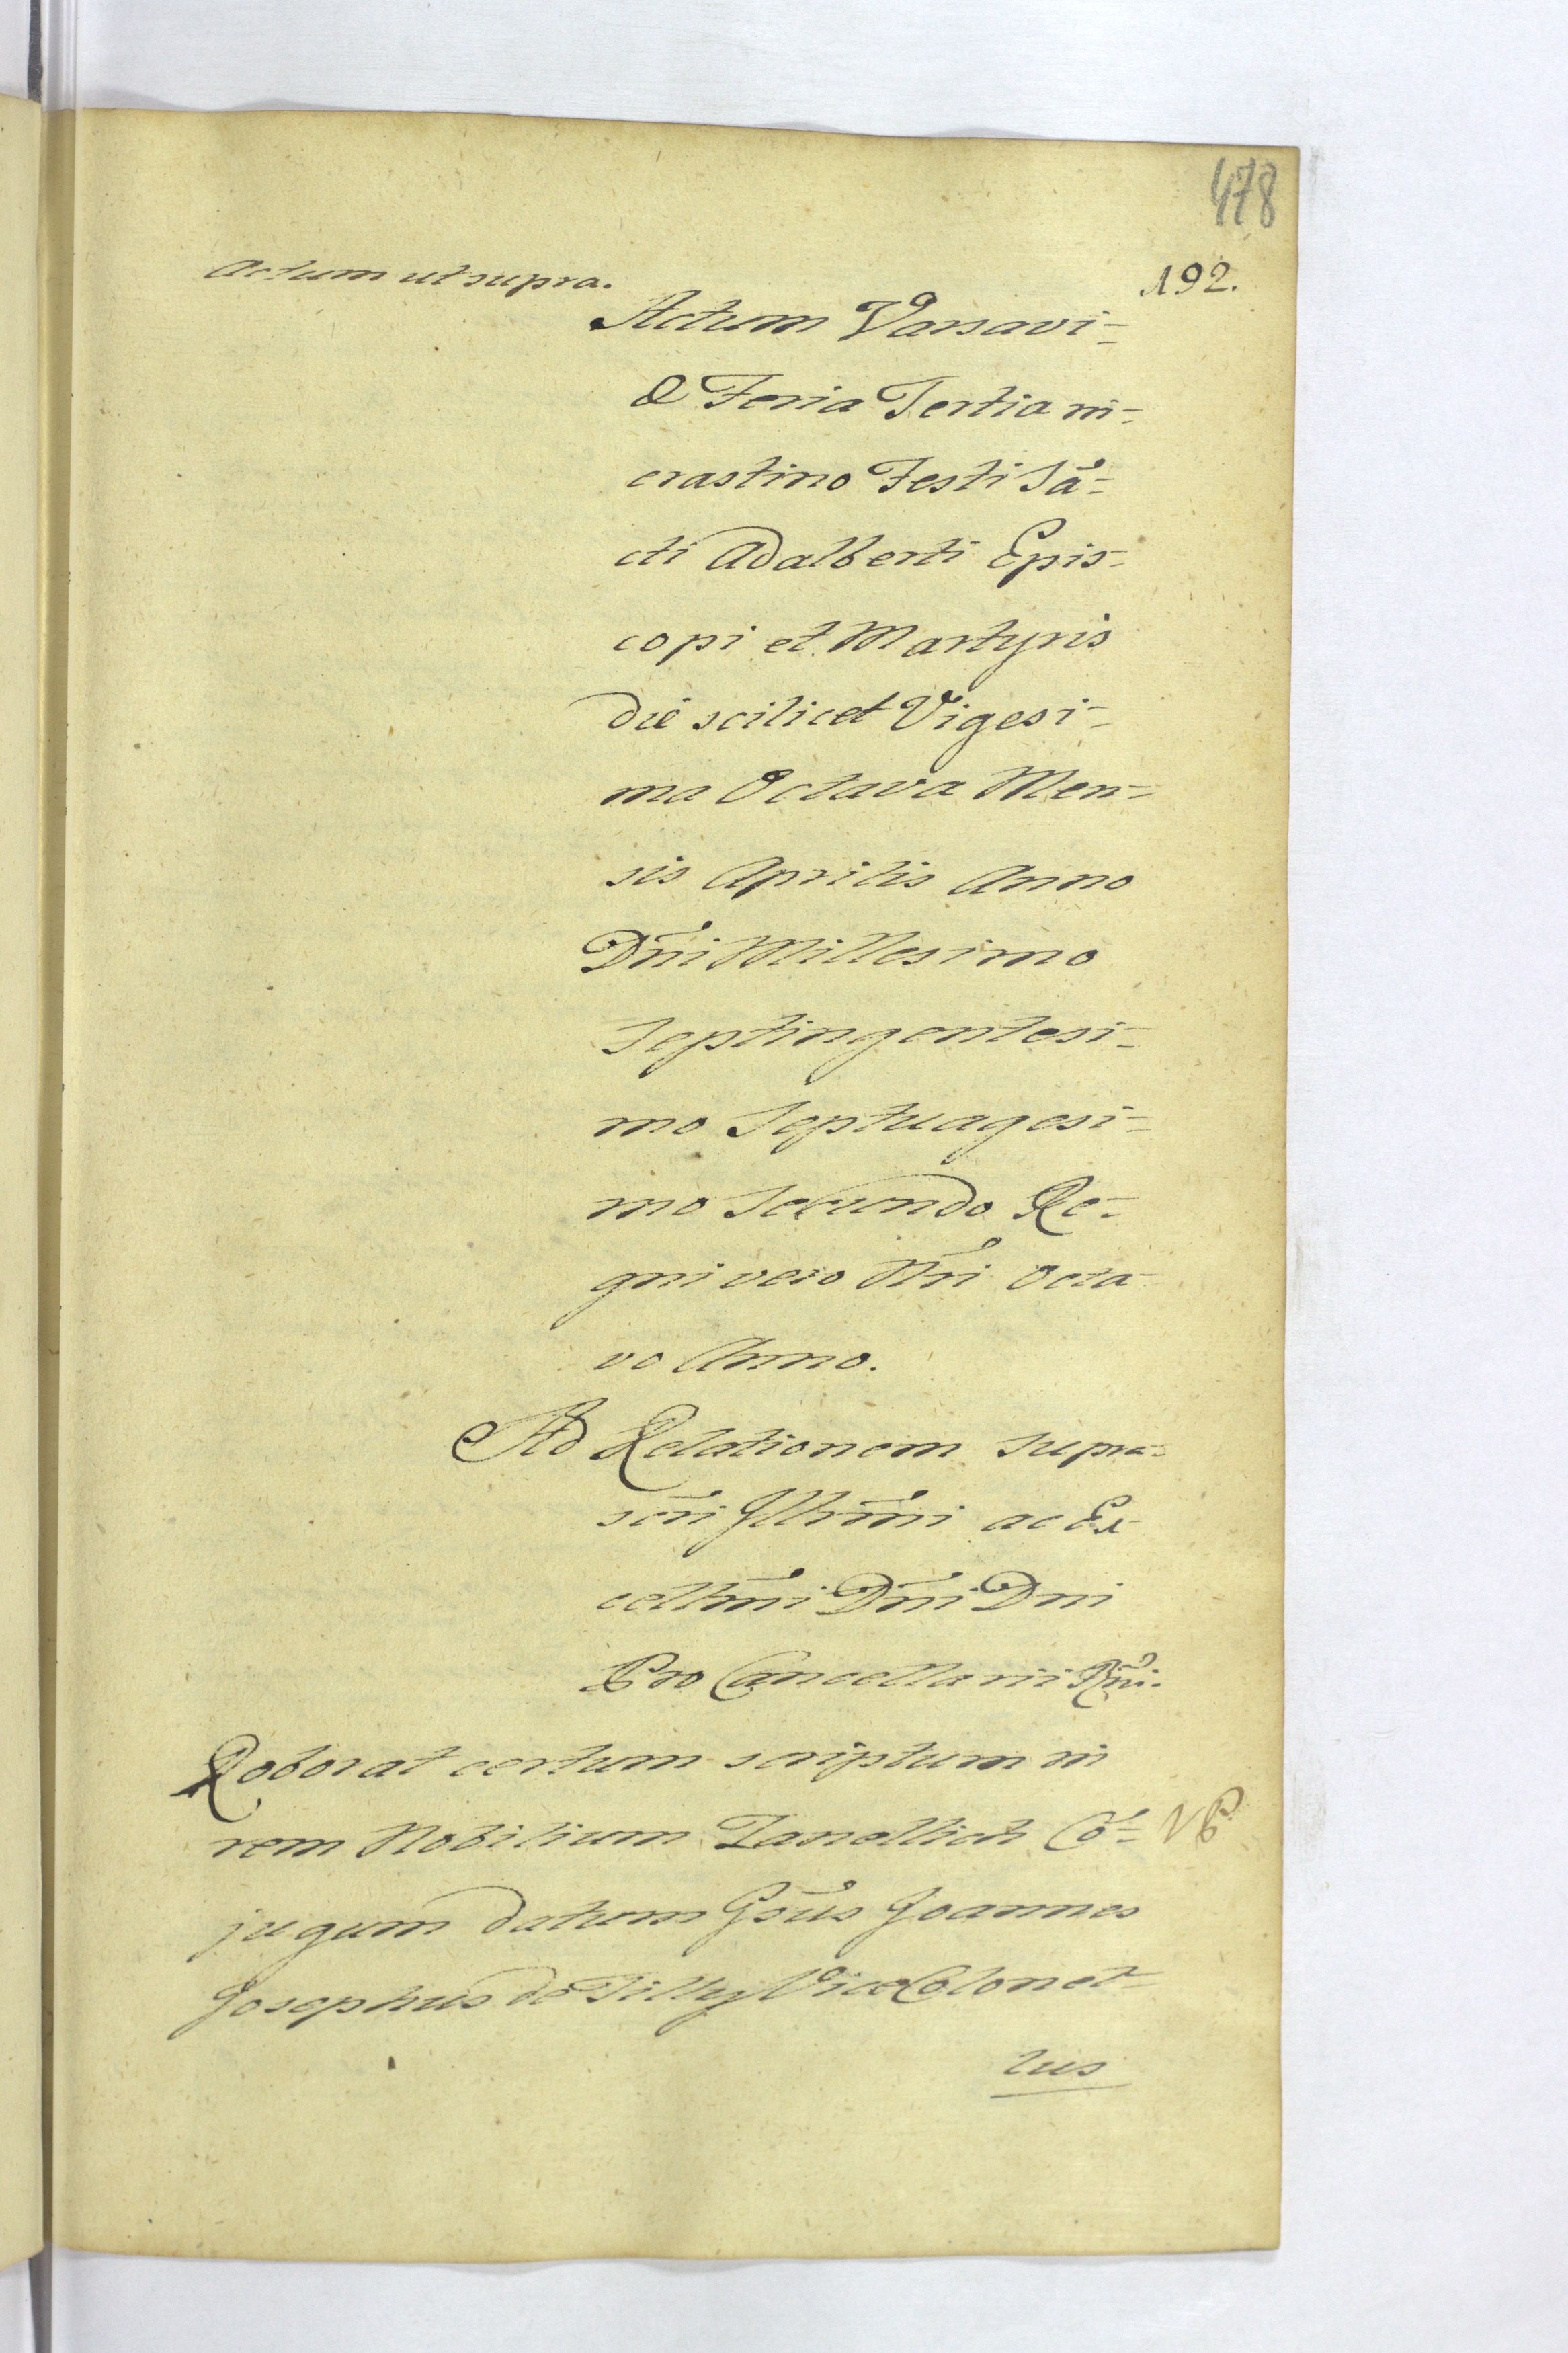 478
192.
Actum ut supra.
Actum Varsavi=
æ Feria Tertia in=
crastino Festi Sã=
cti Adalberti Epis-
copi et Martyris
die scilicet Vigesi-
ma Octava Men=
sis Aprilis Anno
Dñi Millesimo
Septingentesi-
mo Septuagesi-
mo Secundo Re-
gni vero Ñri Octa
vo Anno.
Ad Relationem supra=
scñi Illrm̃i ac Ex-
cellm̃i Dñi Dni
Pro Cancellarii Rñi.
Roborat certum scriptum in
rem Nobilium Lanellich Cõ=
NB
jugum datum Gs̃us Joannes
Josephus de Tilly ViceColonel-
lus